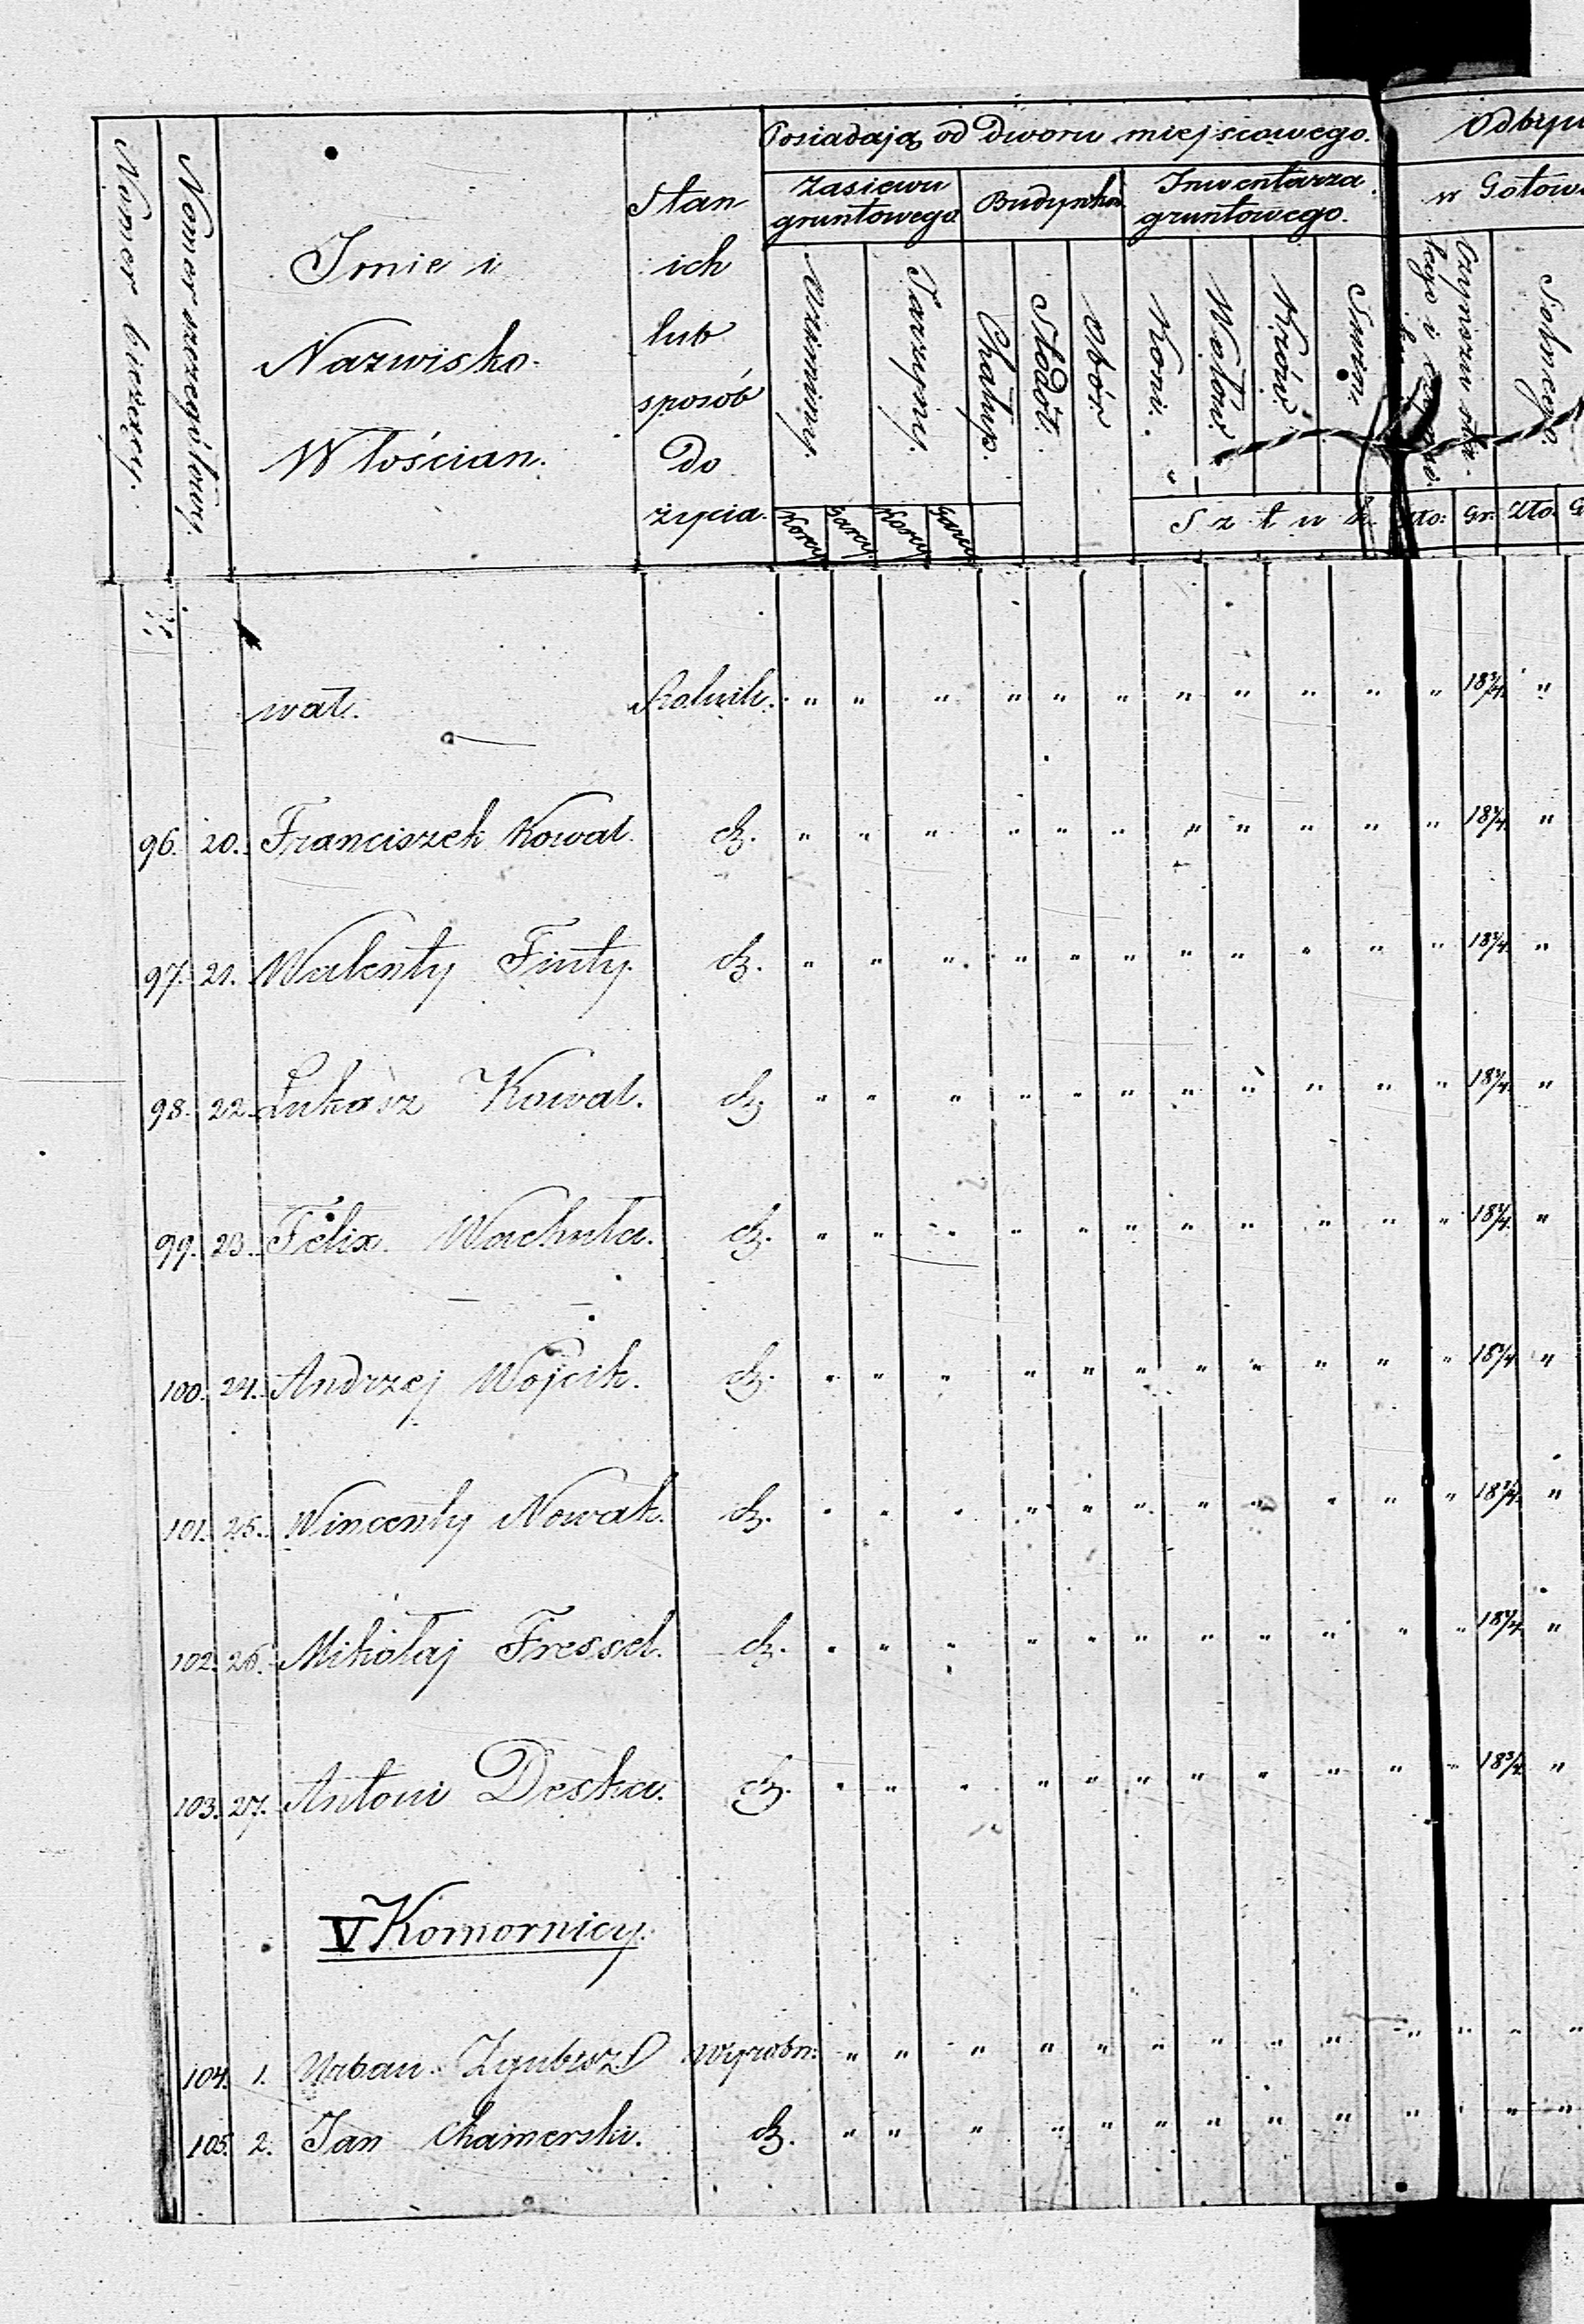 Posiadają od Dworu miejscowego. Odbyw
Zasiewu gruntowego Budynków Inwentarza gruntowego. w Gotow
Numer bieżący. Numer szczegółowy. Imie i Nazwisko Włościan. Stan ich lub sposób do życia.
Oziminy. Jarzyny. Chałup. Stodół. Obór. Koni. Wołów. Krów. Świn. Czynszu Solnego.
Korcy Garcy Korcy Garcy Sztuk Zło: Gr: Zło: G
wał. Rolnik. " " " " " " " " " " " 18¾ "
96. 20. Franciszek Kowal. dt. " " " " " " " " " " " 18¾ "
97. 21. Walenty Finty. dt. " " " " " " " " " " " 18¾ "
98. 22. Łukasz Kowal. dt. " " " " " " " " " " " 18¾ "
99. 23. Felix Wachuta. dt. " " " " " " " " " " " 18¾ "
100. 24. Andrzej Wójcik. dt. " " " " " " " " " " " 18¾ "
101. 25. Wincenty Nowak. dt. " " " " " " " " " " " 18¾ "
102. 26. Mikołaj Fressel. dt. " " " " " " " " " " " 18¾ "
103. 27. Antoni Deska. dt. " " " " " " " " " " " 18¾ "
V Komornicy.
104. 1. Urban Wyrobn: " " " " " " " " " " " " "
105. 2. Jan Chamerski. dt. " " " " " " " " " " " " "